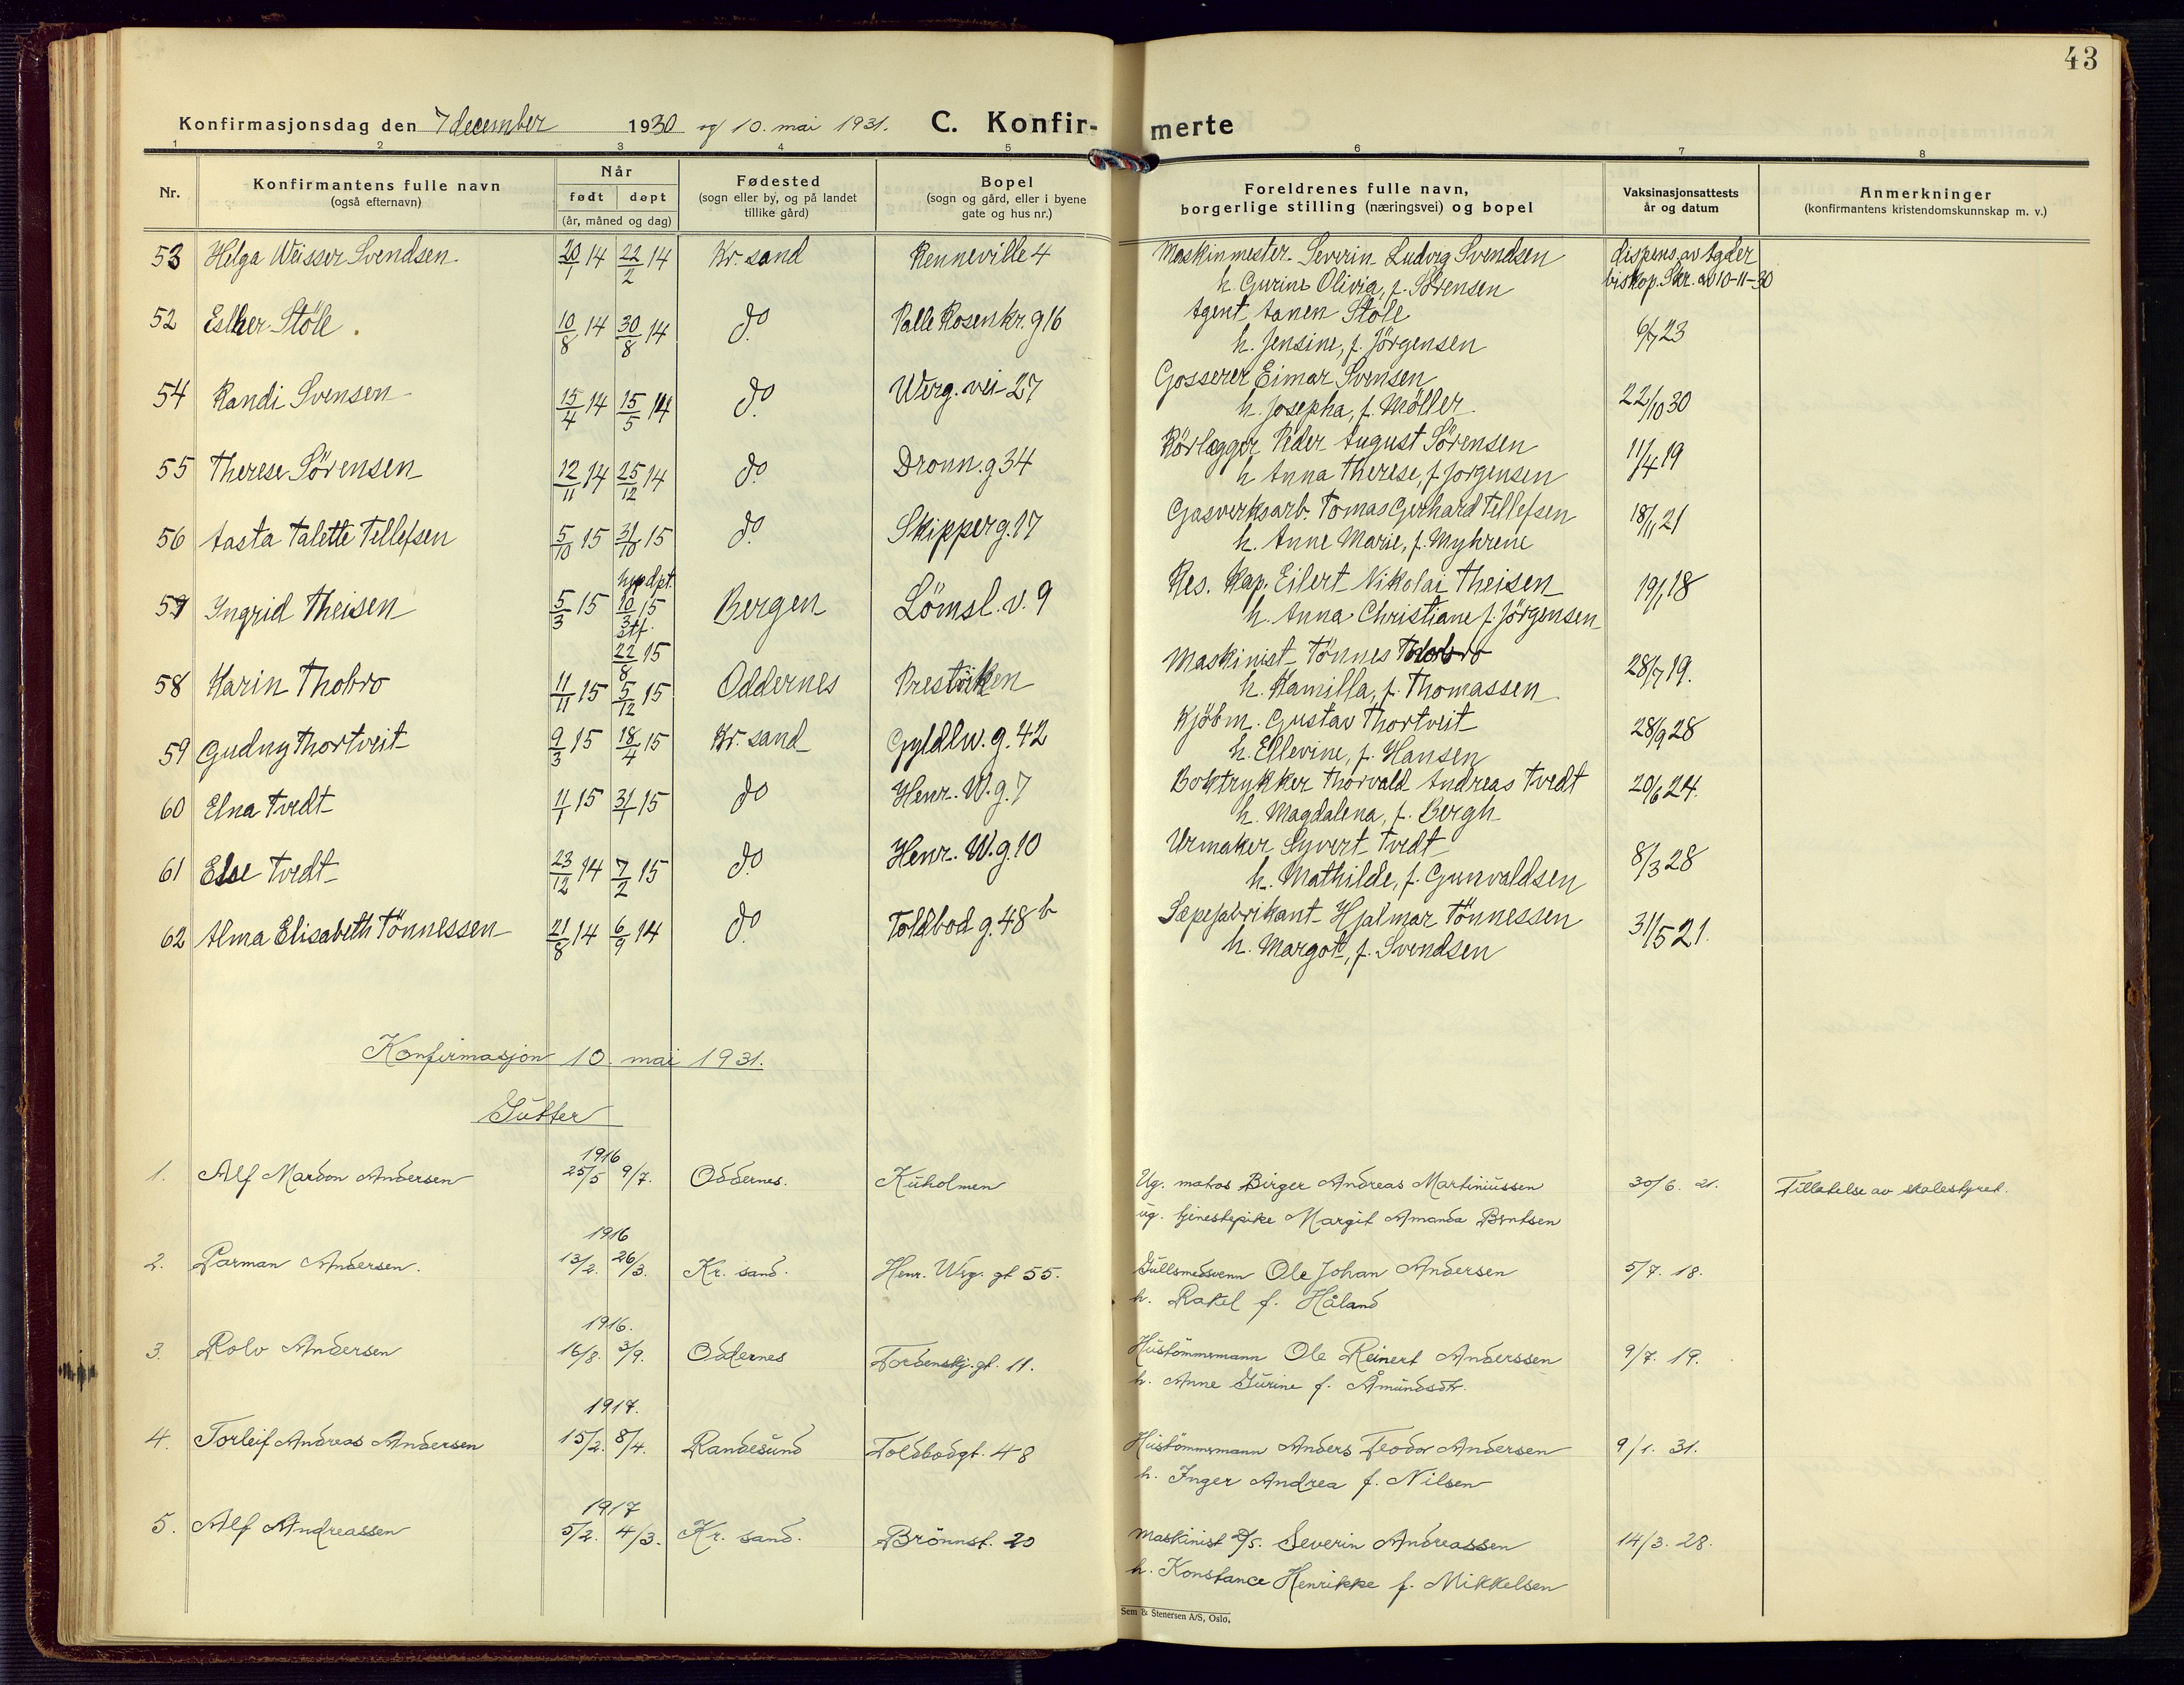 43
Konfirmasjonsdag den 7 december 1930 og 10. mai 1931. C. Konfir-merte
1 2 3 4 5 6 7 8
Nr. Konfirmantens fulle navn (også efternavn) Når født døpt (år, måned og dag) Fødested (sogn eller by, og på landet tillike gård) Bopel (sogn og gård, eller i byene gate og hus nr.) Foreldrenes fulle navn, borgerlige stilling (næringsvei) og bopel Vaksinasjonsattests år og datum Anmerkninger (konfirmantens kristendomskunnskap m. v.)
53 Helga Weisser Svendsen 20/1 14 22/2 14 Kr. sand Renneville 4 Maskinmester Severin Ludvig Svendsen dispens. av Agder
h. Gurine Olivia, f. Sörensen biskop. Skr. av 10-11-30
52 Esther Stöle 10/8 14 30/8 14 do Palle Rosenkr. g 16 Agent Aanen Stöle 6/7 23
h. Jensine, f. Jörgensen
54 Randi Svensen 15/4 14 15/5 14 do Werg. vei 27 Grosserer Eimar Svensen 22/10 30
h. Josepha, f. Möller
55 Therese Sörensen 12/11 14 25/12 14 do Dronn. g 34 Rörlegger Peder August Sörensen 11/4 19
h Anna Therese, f Jorgensen
56 Aasta Talette Tellefsen 5/10 15 31/10 15 do Skipperg. 17 Gasverksarb. Tomas Gerhard Tellefsen 18/11 21
h. Anne Marie, f. Myhrene
57 Ingrid Theisen 5/3 15 hjedpt. 10/3 15 stf. 22/8 15 Bergen Lömsl. v. 9 Res. Kap. Eilert Nikolai Theisen 19/1 18
h. Anna Christiane f. Jörgensen
58 Karin Thobro 11/11 15 5/12 15 Oddernes Prestviken Maskinist Tönnes Thobro 28/7 19.
h. Kamilla, f. Thomassen
59 Gudny Thortveit 9/3 15 18/4 15 Kr. sand Gyldlw. g. 42 Kjöbm. Gustav Thortveit 28/9 28
h. Ellevine, f. Hansen
60 Elna Tvedt 11/1 15 31/1 15 do Henr. W. g. 7 Boktrykker Thorvald Andreas Tvedt 20/6 24.
h. Magdalena, f. Bergh
61 Else Tvedt 23/12 14 7/2 15 do Henr. W. g. 10 Urmaker Syvert Tvedt 8/3 28
h. Mathilde, f. Gunvaldsen
62 Alma Elisabeth Tönnessen 21/8 14 6/9 14 do Toldbod g. 48 b Sæpefabrikant Hjalmar Tönnessen 31/5 21.
h. Margot, f. Svendsen
Konfirmasjon 10. mai 1931.
Gutter
1. Alf Mardon Andersen 1916 25/5 9/7. Oddernes. Kuholmen Ug. matos Birger Andreas Martiniussen 30/6. 21. Tillatelse av skolestyret.
ug. tjenestepike Margit Amanda Berntsen
2. Parman Andersen. 1916 13/2. 26/3. Kr. sand. Henr. Werg. gt 55. Gullsmedsvenn Ole Johan Andersen 5/7. 18.
h. Rakel f. Håland
3. Rolv Andersen 1916. 16/8. 3/9. Oddernes Tordenskj. gt. 11. Hustömmermann Ole Reinert Anderssen 9/7. 19.
h. Anne Gurine f. Åmundsdtr.
4. Torleif Andreas Andersen 1917. 15/2. 8/4. Randesund Toldbodgt. 48 Hustömmermann Anders Teodor Andersen 9/1. 31.
h. Inger Andrea f. Nilsen
5. Alf Andreassen 1917 5/2. 4/3. Kr. sand. Brönnst. 20 Maskinist D/S. Severin Andreassen 14/3. 28.
h. Konstance Henrikke f. Mikkelsen
Sem & Stenersen A/S, Oslo.